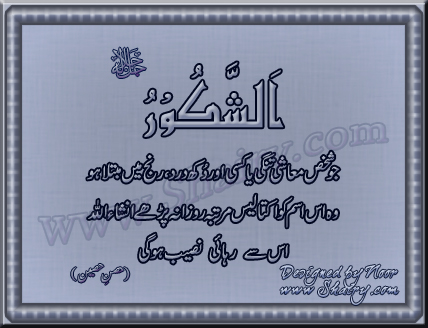 جل جلالہ
اَلشَّكُوْرُ
جو شخص معاشی تنگی یا کسی اور دُکھ درد و رنج میں مبتلا ہو
وہ اس اسم کو اکتالیس مرتبہ روزانہ پڑھے انشاءاللہ
اس سے رہائی نصیب ہوگی
(حصن حصین)
Designed by Noor
www.Shairy.com
www.Shairy.com